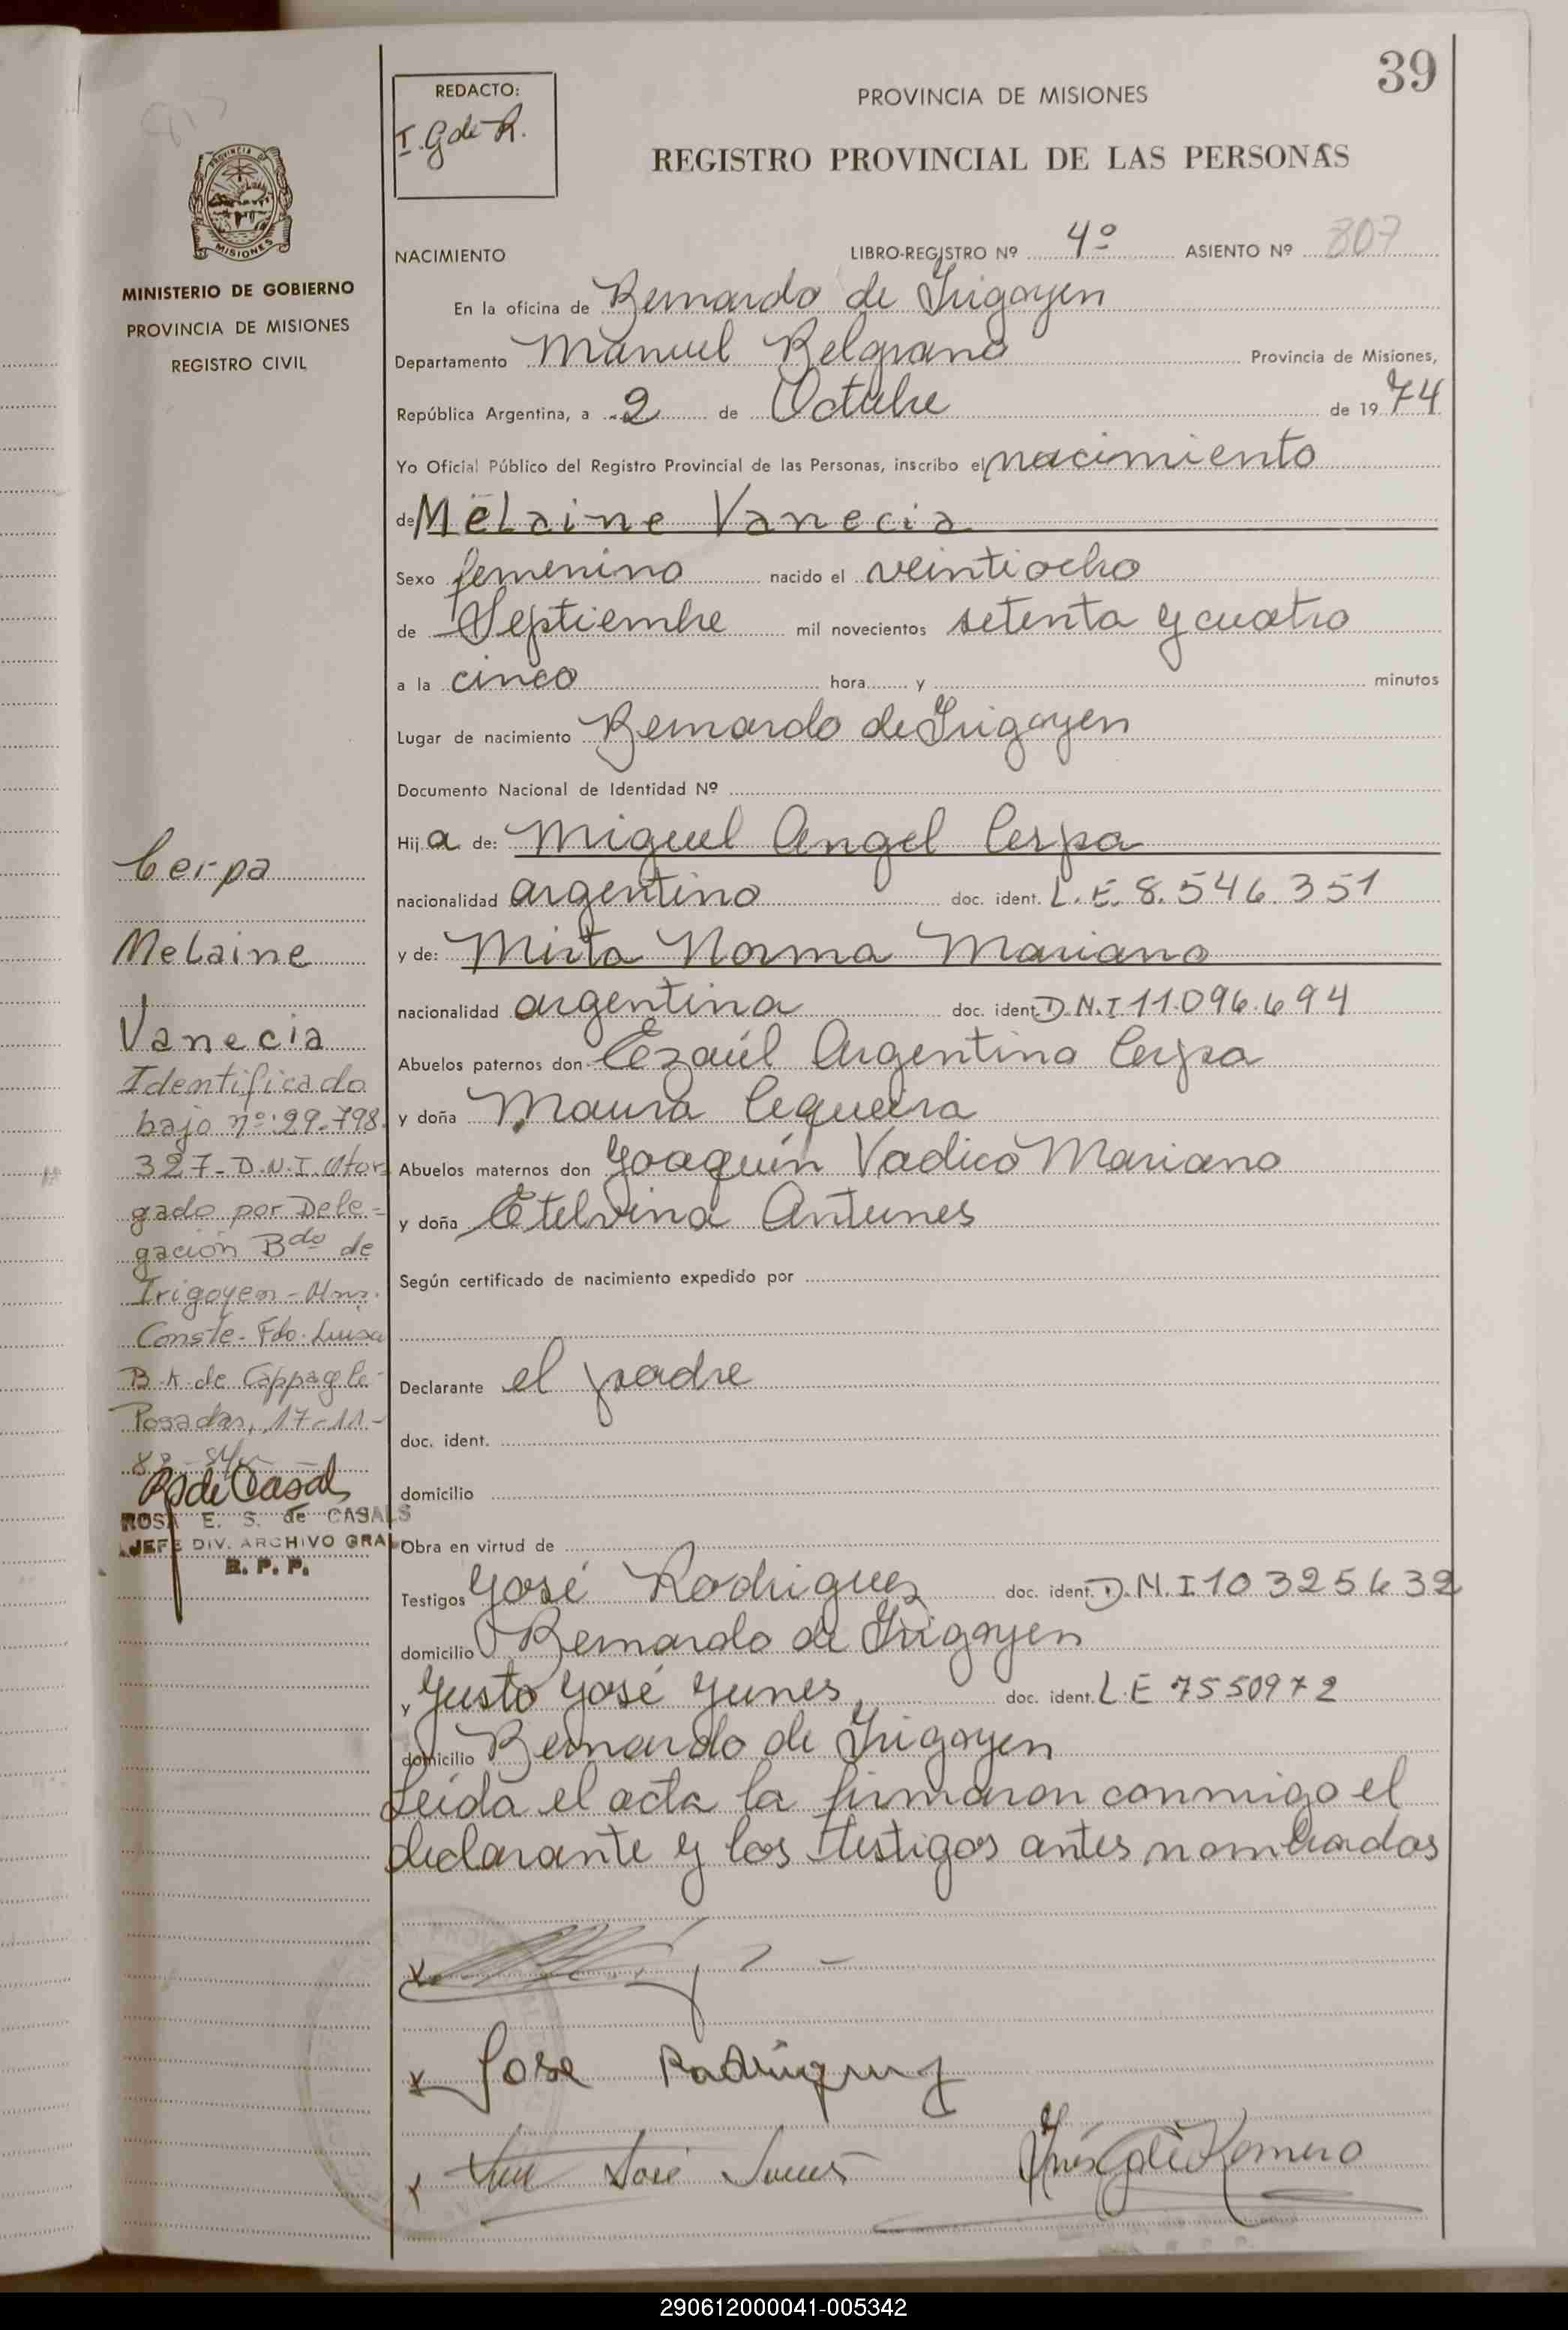 39
REDACTO:
I. G de R.
PROVINCIA DE MISIONES
REGISTRO PROVINCIAL DE LAS PERSONAS
PROVINCIA DE
MISIONES
MINISTERIO DE GOBIERNO
PROVINCIA DE MISIONES
REGISTRO CIVIL
NACIMIENTO LIBRO-REGISTRO Nº 4º ASIENTO Nº 807
En la oficina de Bernardo de Irigoyen
Departamento Manuel Belgrano Provincia de Misiones,
República Argentina, a 2 de Octubre de 1974
Yo Oficial Público del Registro Provincial de las Personas, inscribo el nacimiento
de Melaine Vanecia
Sexo femenino nacido el veintiocho
de Septiembre mil novecientos setenta y cuatro
a la cinco hora y minutos
Lugar de nacimiento Bernardo de Irigoyen
Documento Nacional de Identidad Nº
Hija de: Miguel Angel Cerpa
nacionalidad argentino doc. ident. L.E. 8.546.351
y de: Mirta Norma Mariano
nacionalidad argentina doc. ident. D.N.I 11.096.694
Abuelos paternos don Ezaúl Argentino Cerpa
y doña Maura Cequeira
Abuelos maternos don Joaquín Vadico Mariano
y doña Etelvina Antunes
Según certificado de nacimiento expedido por
Declarante el padre
doc. ident.
domicilio
Obra en virtud de
Testigos José Rodriguez doc. ident. D.N.I 10325632
domicilio Bernardo de Irigoyen
y Justo José Junes, doc. ident. L.E 7550972
domicilio Bernardo de Irigoyen
Leida el acta la firmaron conmigo el
declarante y los testigos antes nombrados
Jose Rodriguez
José Junes
Inés G de Romero
Cerpa
Melaine
Vanecia
Identificado
bajo nº: 29.798.
327-D.N.I. Otor
gado por Dele=
gación Bdo de
Irigoyen-Mns.
Conste-Fdo. Luisa
B.K. de Cappagle-
Posadas, 17-11-
R S de Casals
ROSA E. S. de CASALS
JEFE DIV. ARCHIVO GRAL
R. P. P.
290612000041-005342